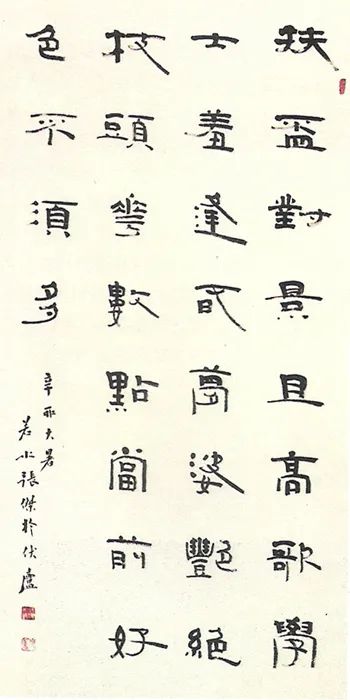 扶盃對景且高歌學
士羞逢旾夢婆豔絕
枝頭華數點當前好
色不須多
辛酉大暑
若水張傑於伏盧